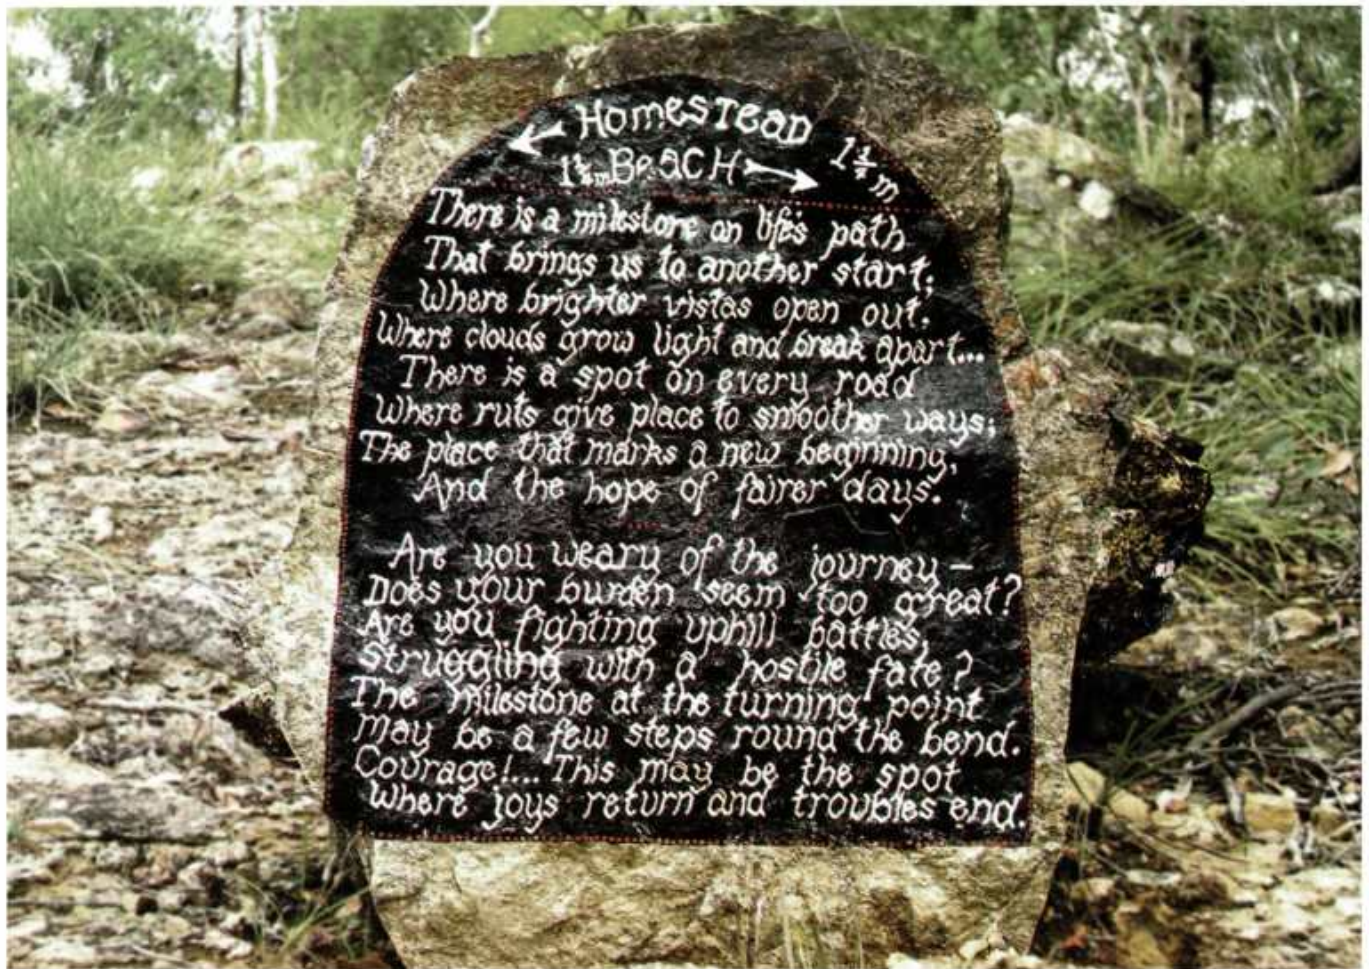 ← Homestead 1¾m
1½m Beach →
There is a milestone on life's path
That brings us to another start;
Where brighter vistas open out.
Where clouds grow light and break apart...
There is a spot on every road
Where ruts give place to smoother ways;
The place that marks a new beginning,
And the hope of fairer days.
Are you weary of the journey –
Does your burden seem too great?
Are you fighting uphill battles,
Struggling with a hostile fate?
The milestone at the turning point
May be a few steps round the bend.
Courage!... This may be the spot
Where joys return and troubles end.